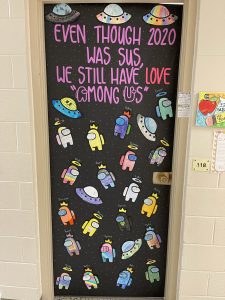 EVEN THOUGH 2020
WAS SUS,
WE STILL HAVE LOVE
"AMONG US"
118